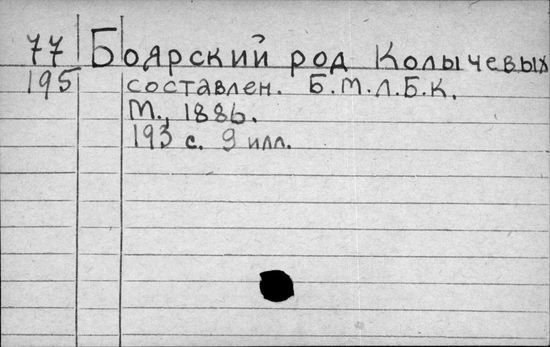 77 Боярский род Колычевых
195 составлен. Б.М.Л.Б.К.
М., 1886.
193 с. 9 илл.